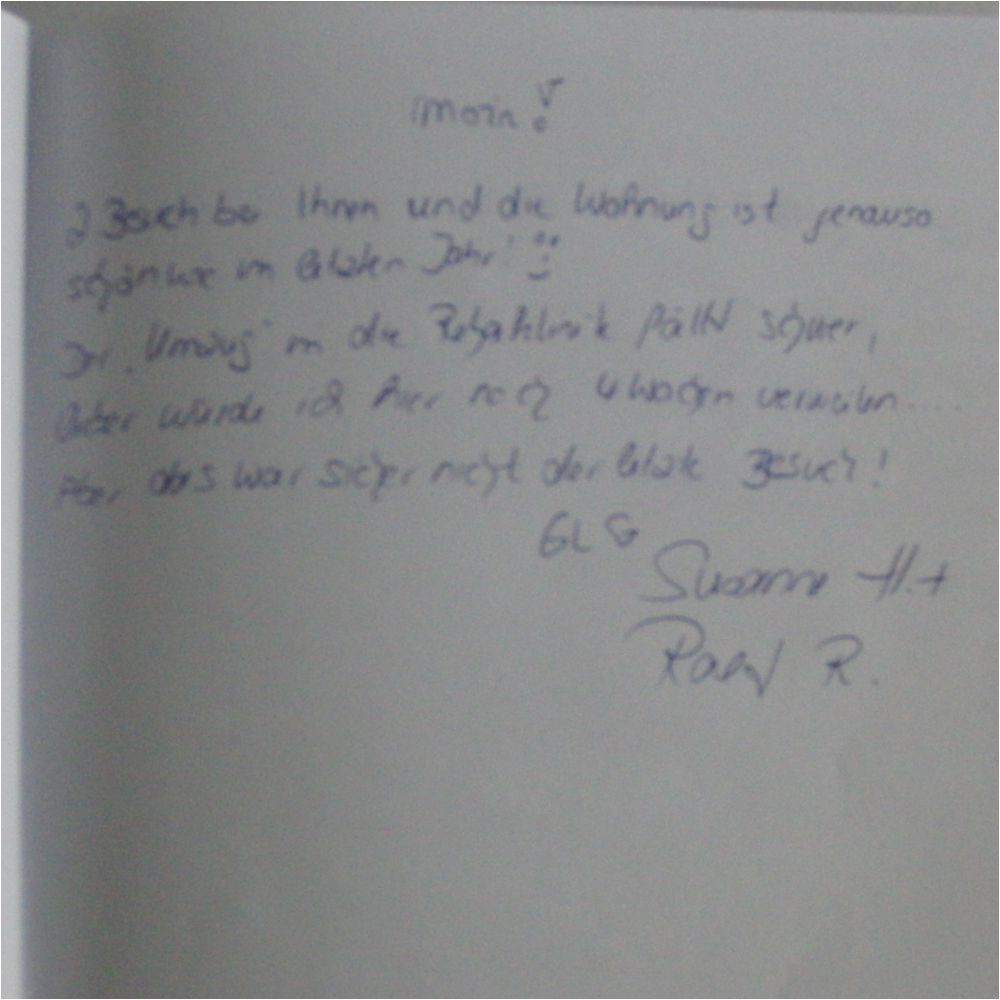 Moin!
2 Besuch bei Ihnen und die Wohnung ist genauso
schön wie im letzten Jahr! :)
Der "Umzug" in die Rehaklinik fällt schwer,
lieber würde ich hier noch 4 Wochen verweilen....
Aber das war sicher nicht der letzte Besuch!
GLG
Susanne H. +
R.